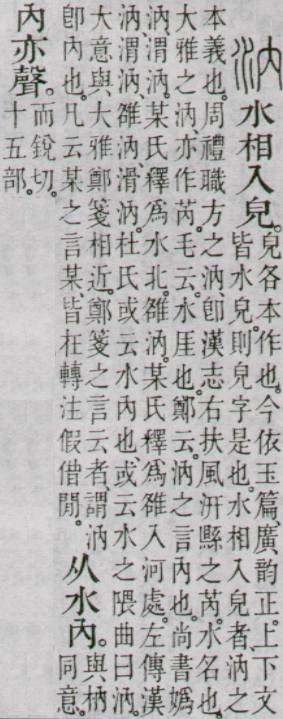 汭水相入皃。皃各本作也。今依玉篇、廣韵正。上下文
皆水皃。則皃字是也。水相入皃者、汭之
本義也。周禮職方之汭、卽漢志右扶風汧縣之芮。水名也。
大雅之汭、亦作芮。毛云。水厓也。鄭云。汭之言內也。尙書嬀
汭、渭汭。某氏釋爲水北。雒汭。某氏釋爲雒入河處。左傳漢
汭、渭汭、雒汭、滑汭。杜氏或云水內也。或云水之隈曲曰汭。
大意與大雅鄭箋相近。鄭箋之言云者、謂汭
卽內也。凡云某之言某皆在轉注假借閒。
从水內。與枘
同意。
內亦聲。而銳切。
十五部。